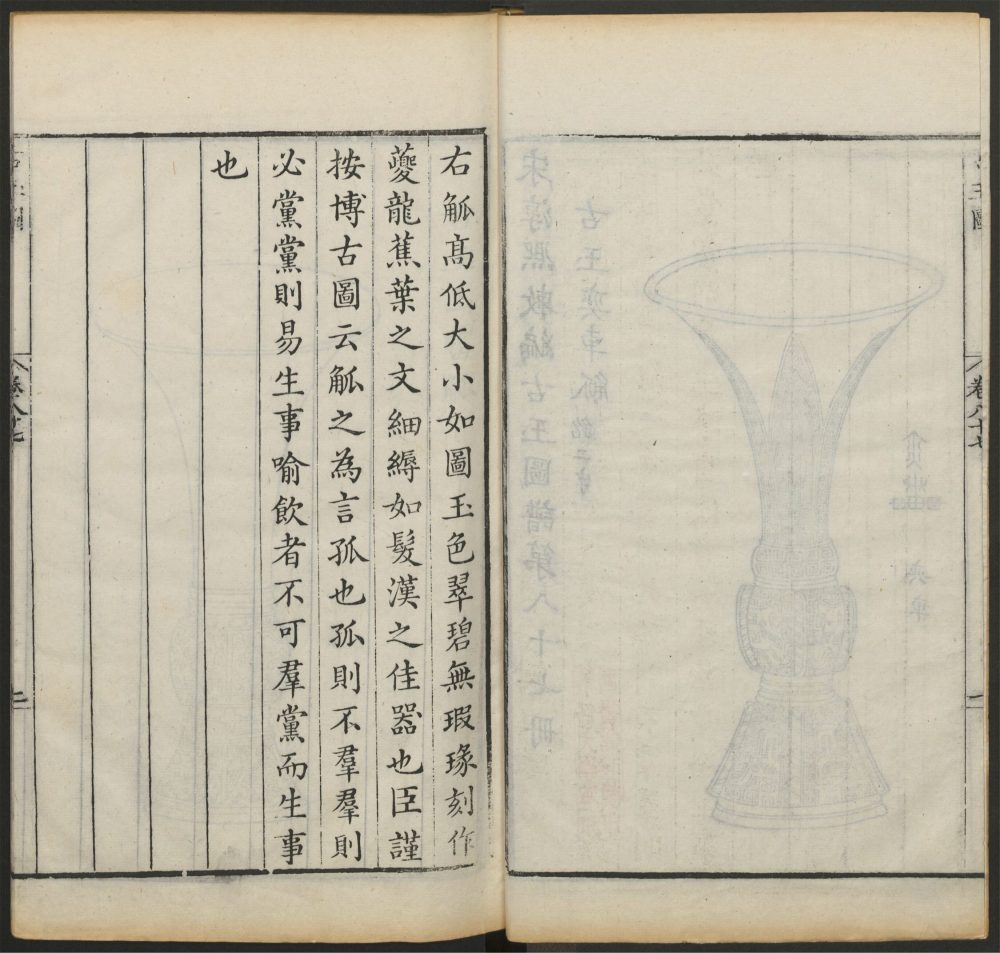 卷八十七
一
右觚髙低大小如圖玉色翠碧無瑕瑑刻作
夔龍蕉葉之文細縟如髮漢之佳器也臣謹
按博古圖云觚之為言孤也孤則不羣羣則
必黨黨則易生事喻飲者不可羣黨而生事
也
卷八十七
二